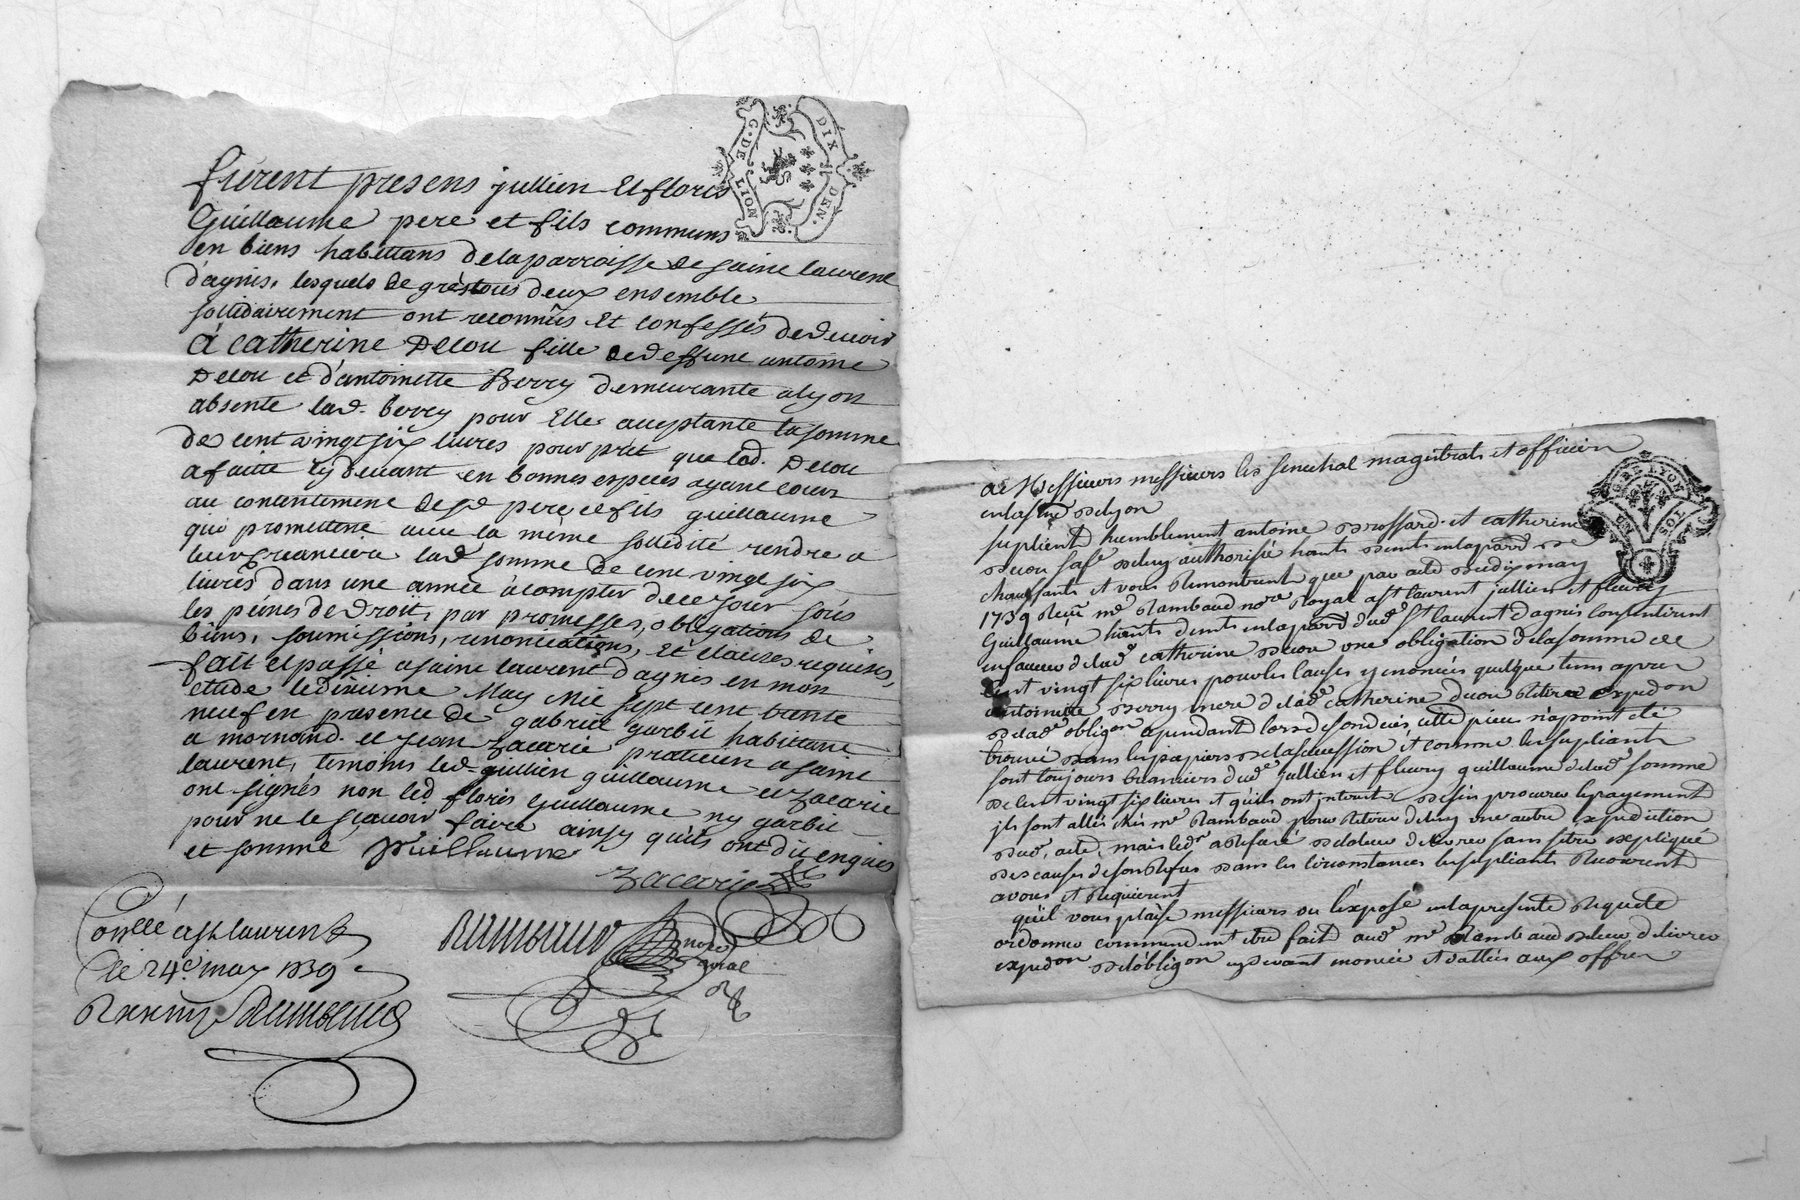 G. DE LION
DIX DEN.
furent presens jullien Et floris
Guillaume pere et fils communs
en biens habittans delaparroisse de saint laurent
d'agnis, lesquels de grés tous deux ensemble
sollidairement ont reconnûs Et confessés dedevoir
à catherine Decou fille dedeffunt antoine
Decou et d'antoinette Berry demeurante a lyon
absente lad. berry pour Elle acceptante la somme
de cent vingt six livres pour prêt que lad. Decou
a faitte cy devant en bonnes especes ayant cour
au contentement desd. pere et fils guillaume
qui promettent avec la même sollidité rendre a
leur creanciere lad. somme de cent vingt six
livres dans une année à compter de ce jour sous
les peines de Droit, par promesses, obligations de
biens, soumissions, renonciations, Et clauses requises,
fait et passé a saint laurent d'agnis en mon
etude le dixieme May Mil sept cent trente
neuf en presence de gabriel garbit habittant
a mornand. et jean Zacarie praticien a saint
laurent, temoins led. jullien guillaume et Zacarie
ont signés non led. floris Guillaume ny garbit
pour ne le sçavoir faire ainsy qu'ils ont dit enquis
et sommé Guillaume
Zacarie
Conllé a st laurent
le 24e. may 1739
Rambaud
Rambaud no.re royal
G. DE LYON
UN SOL
A Messieurs messieurs les senechal magistrats et officiers
en la sené de lyon
suplient humblement antoine Brossard et catherine
Decou sa fe de luy authorisée hants
chaussants et vous Remontrent que par acte du dix may
1739 Reçu me Rambaud nore Royal a st laurent jullien et fleury
Guillaume hants dud st laurent d'agnis consentirent
en faveur de lad catherine Decou une obligation de la somme de
cent vingt six livres pour les causes y enoncés quelque tems apres
antoinette Berry mere de lad catherine decou Retira Expedon
de lad obligon cependant lors de son decés cette piece n'a point eté
trouvée dans les papiers de la succession, et comme les supliants
sont toujours creanciers dud jullien et fleury guillaume de lad somme
de cent vingt six livres et qu'ils ont interest de s'en procurer le payement
ils sont allés chés me Rambaud pour Retirer de luy une autre expedition
dud. acte, mais led a Refusé de la leur delivrer sans s'etre expliqué
des causes de son Refus dans les circonstances les supliants Recourent
a vous et Requierent
qu'il vous plaise messieurs vu l'exposé en la presente Requete
ordonner commandement etre fait aud me Rambaud de leur delivrer
expedon de l'obligon cy devant enoncée et dattée aux offres